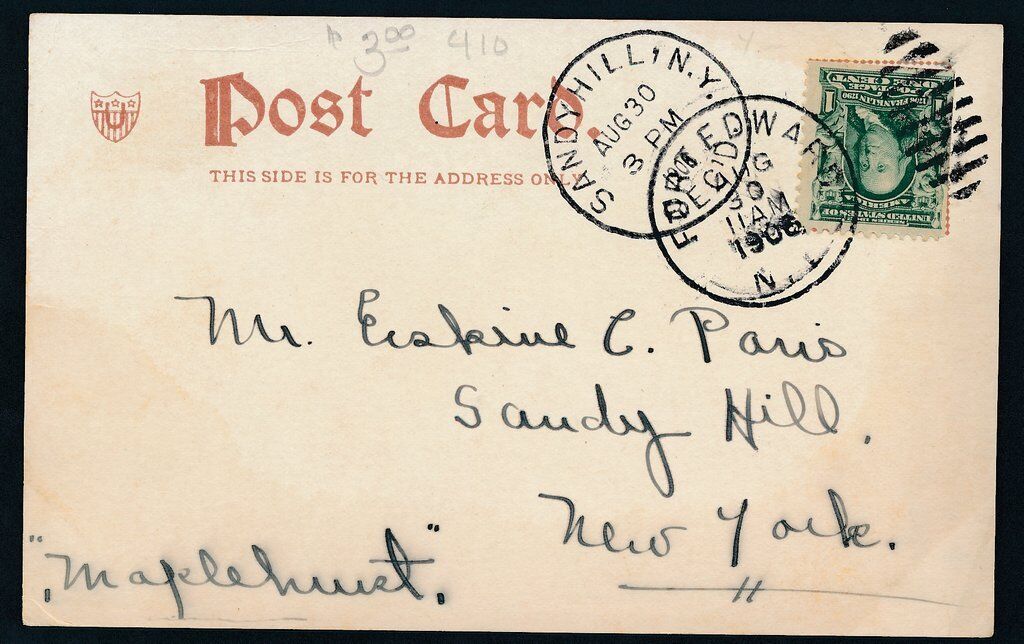 $ 3.00 410
Post Card.
THIS SIDE IS FOR THE ADDRESS ONLY
U
SANDY HILL, N.Y.
AUG 30
3 PM
1906
REC'D.
FORT EDWARD
AUG
30
11 AM
1906
N.Y.
SERIES 1902
UNITED STATES OF
AMERICA
1706 FRANKLIN 1790
POSTAGE
ONE CENT
1 1
Mr. Erskine C. Paris
Sandy Hill,
New York.
"Maplehurst,"